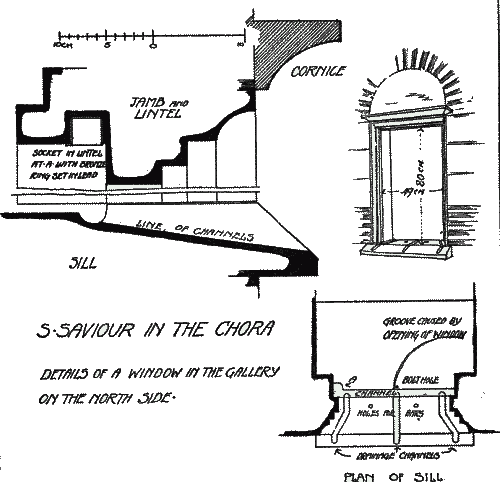 10CM 5 0 10
CORNICE
JAMB AND
LINTEL
SOCKET IN LINTEL
AT·A·WITH BRONZE
RING SET IN LEAD
LINE OF CHANNELS
SILL
280 CM
S·SAVIOUR IN THE CHORA
DETAILS OF A WINDOW IN THE GALLERY
ON THE NORTH SIDE·
GROOVE CAUSED BY
OPENING OF WINDOW
BOLT HOLE
CHANNEL
HOLES FOR BARS
DRAINAGE CHANNELS
PLAN OF SILL